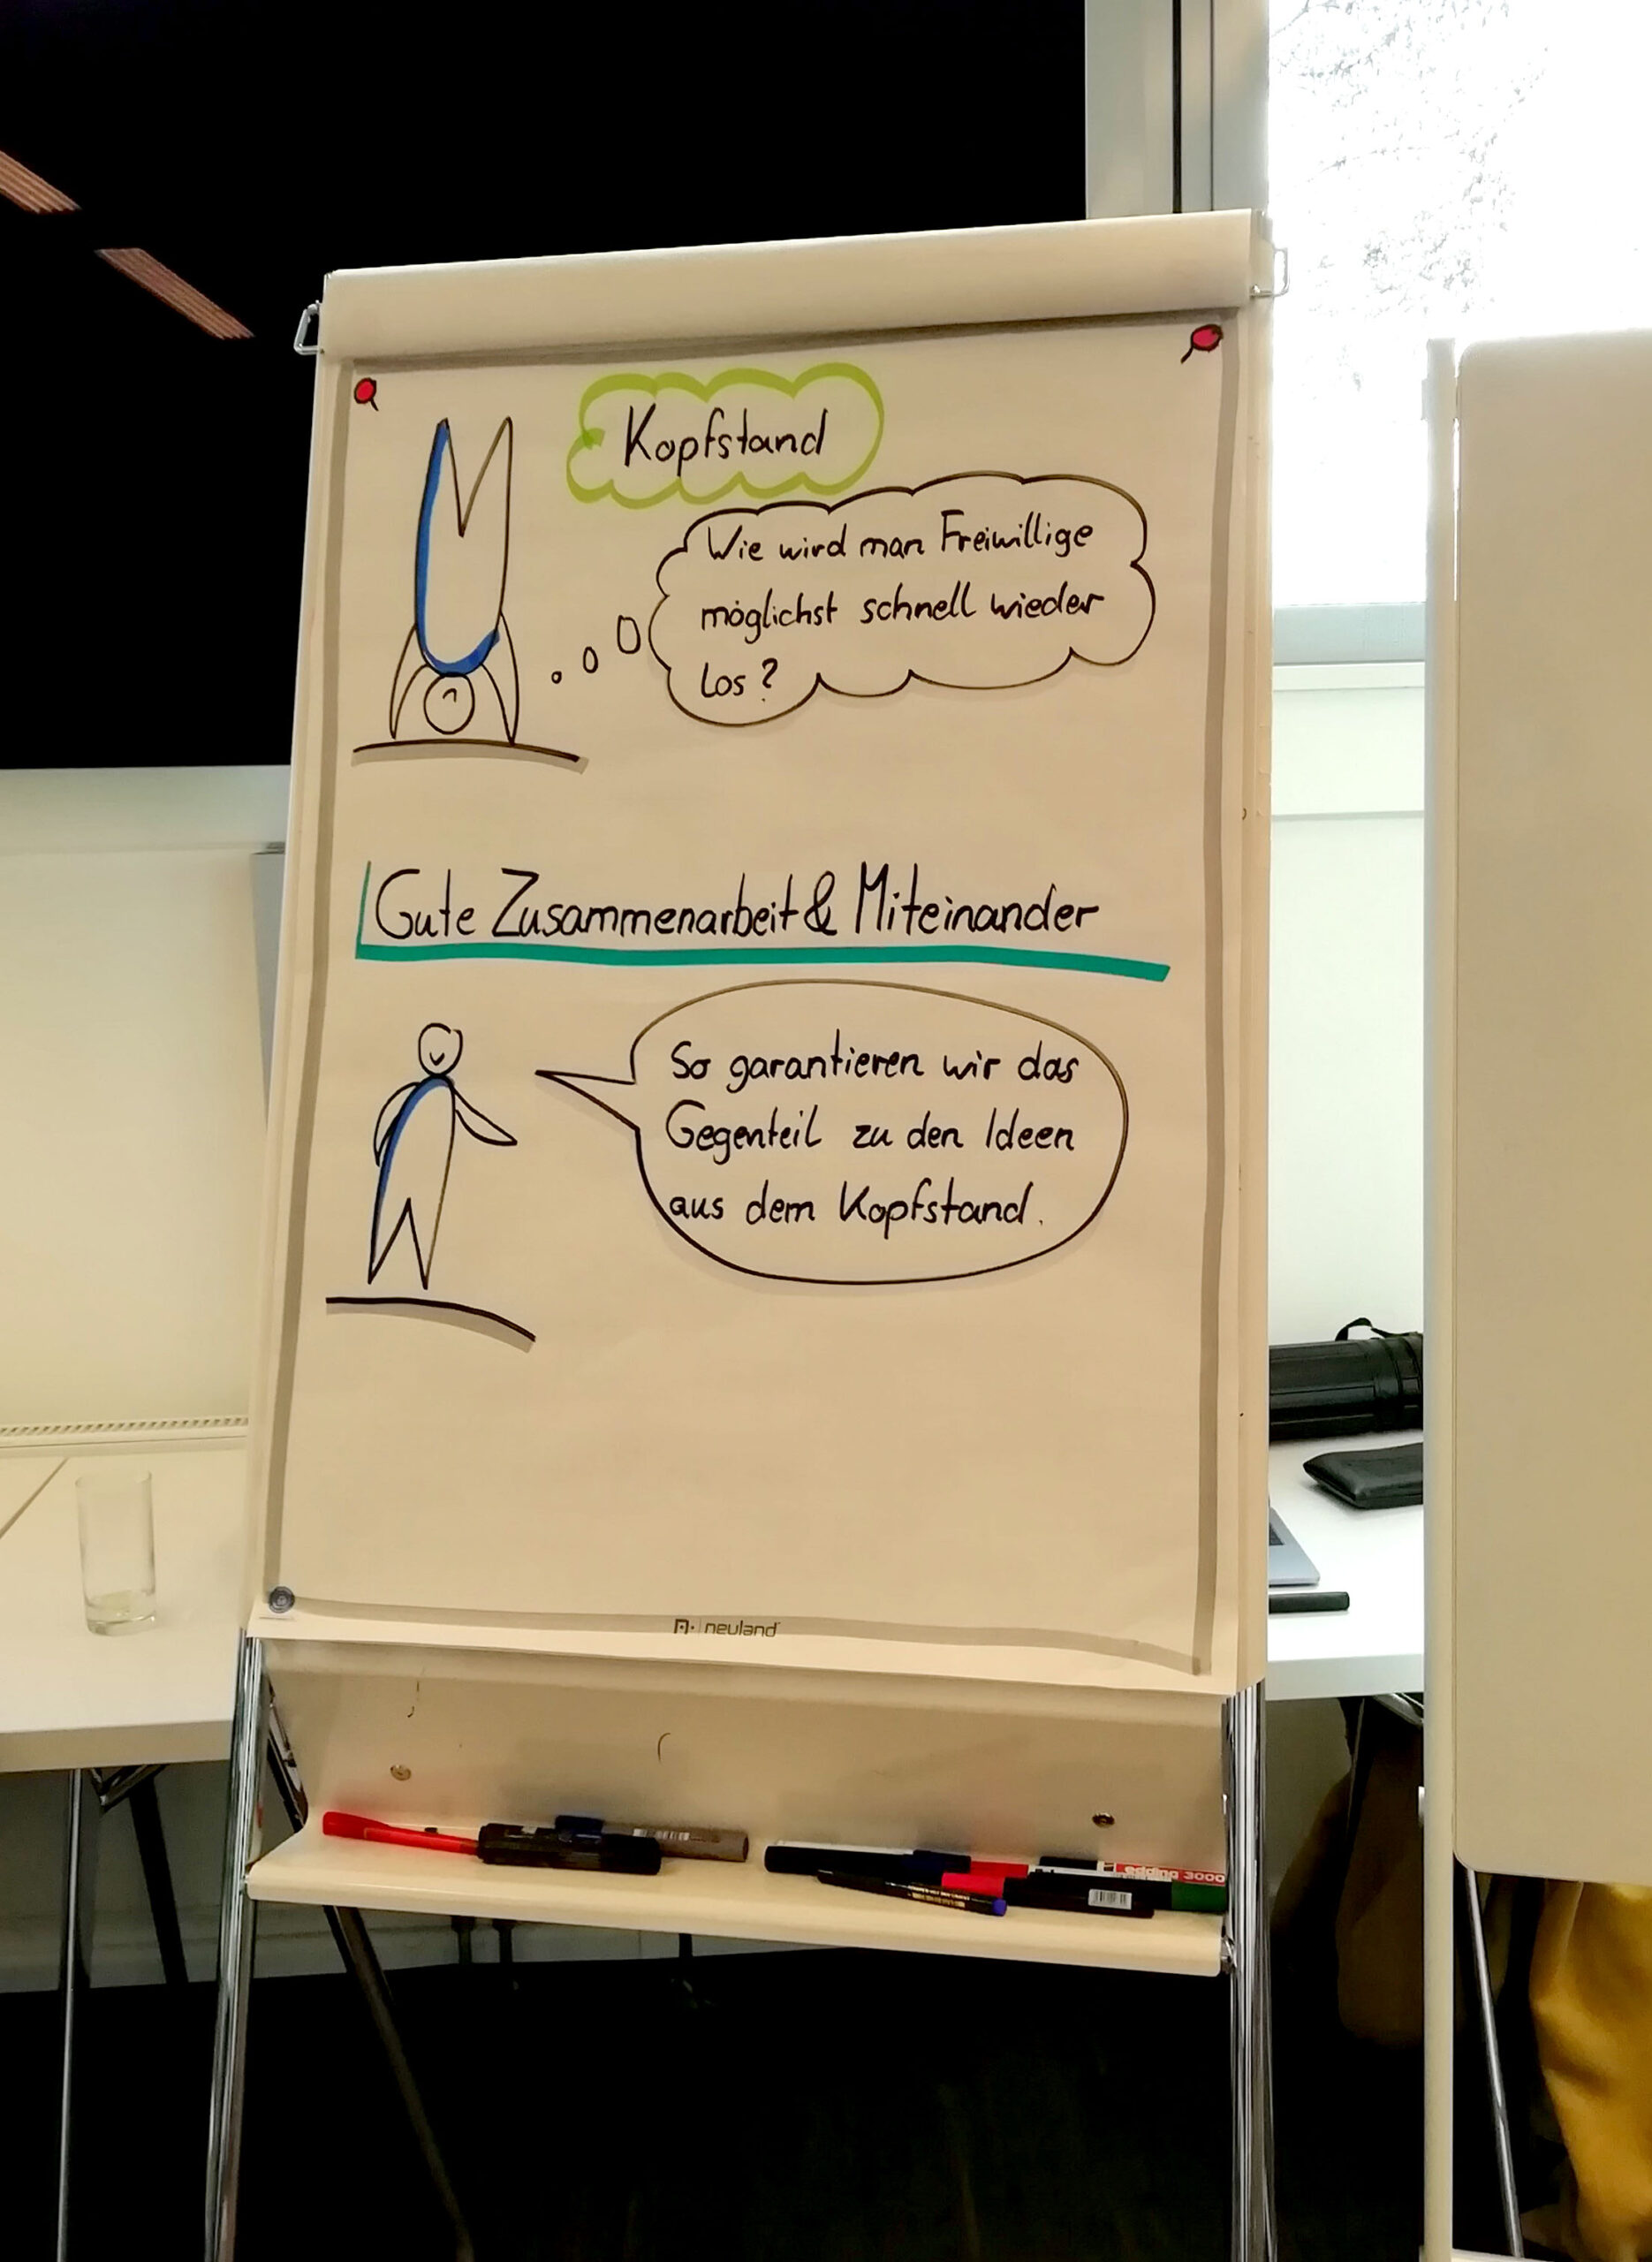 Kopfstand
Wie wird man Freiwillige
möglichst schnell wieder
los?
Gute Zusammenarbeit & Miteinander
So garantieren wir das
Gegenteil zu den Ideen
aus dem Kopfstand.
neuland
edding 3000